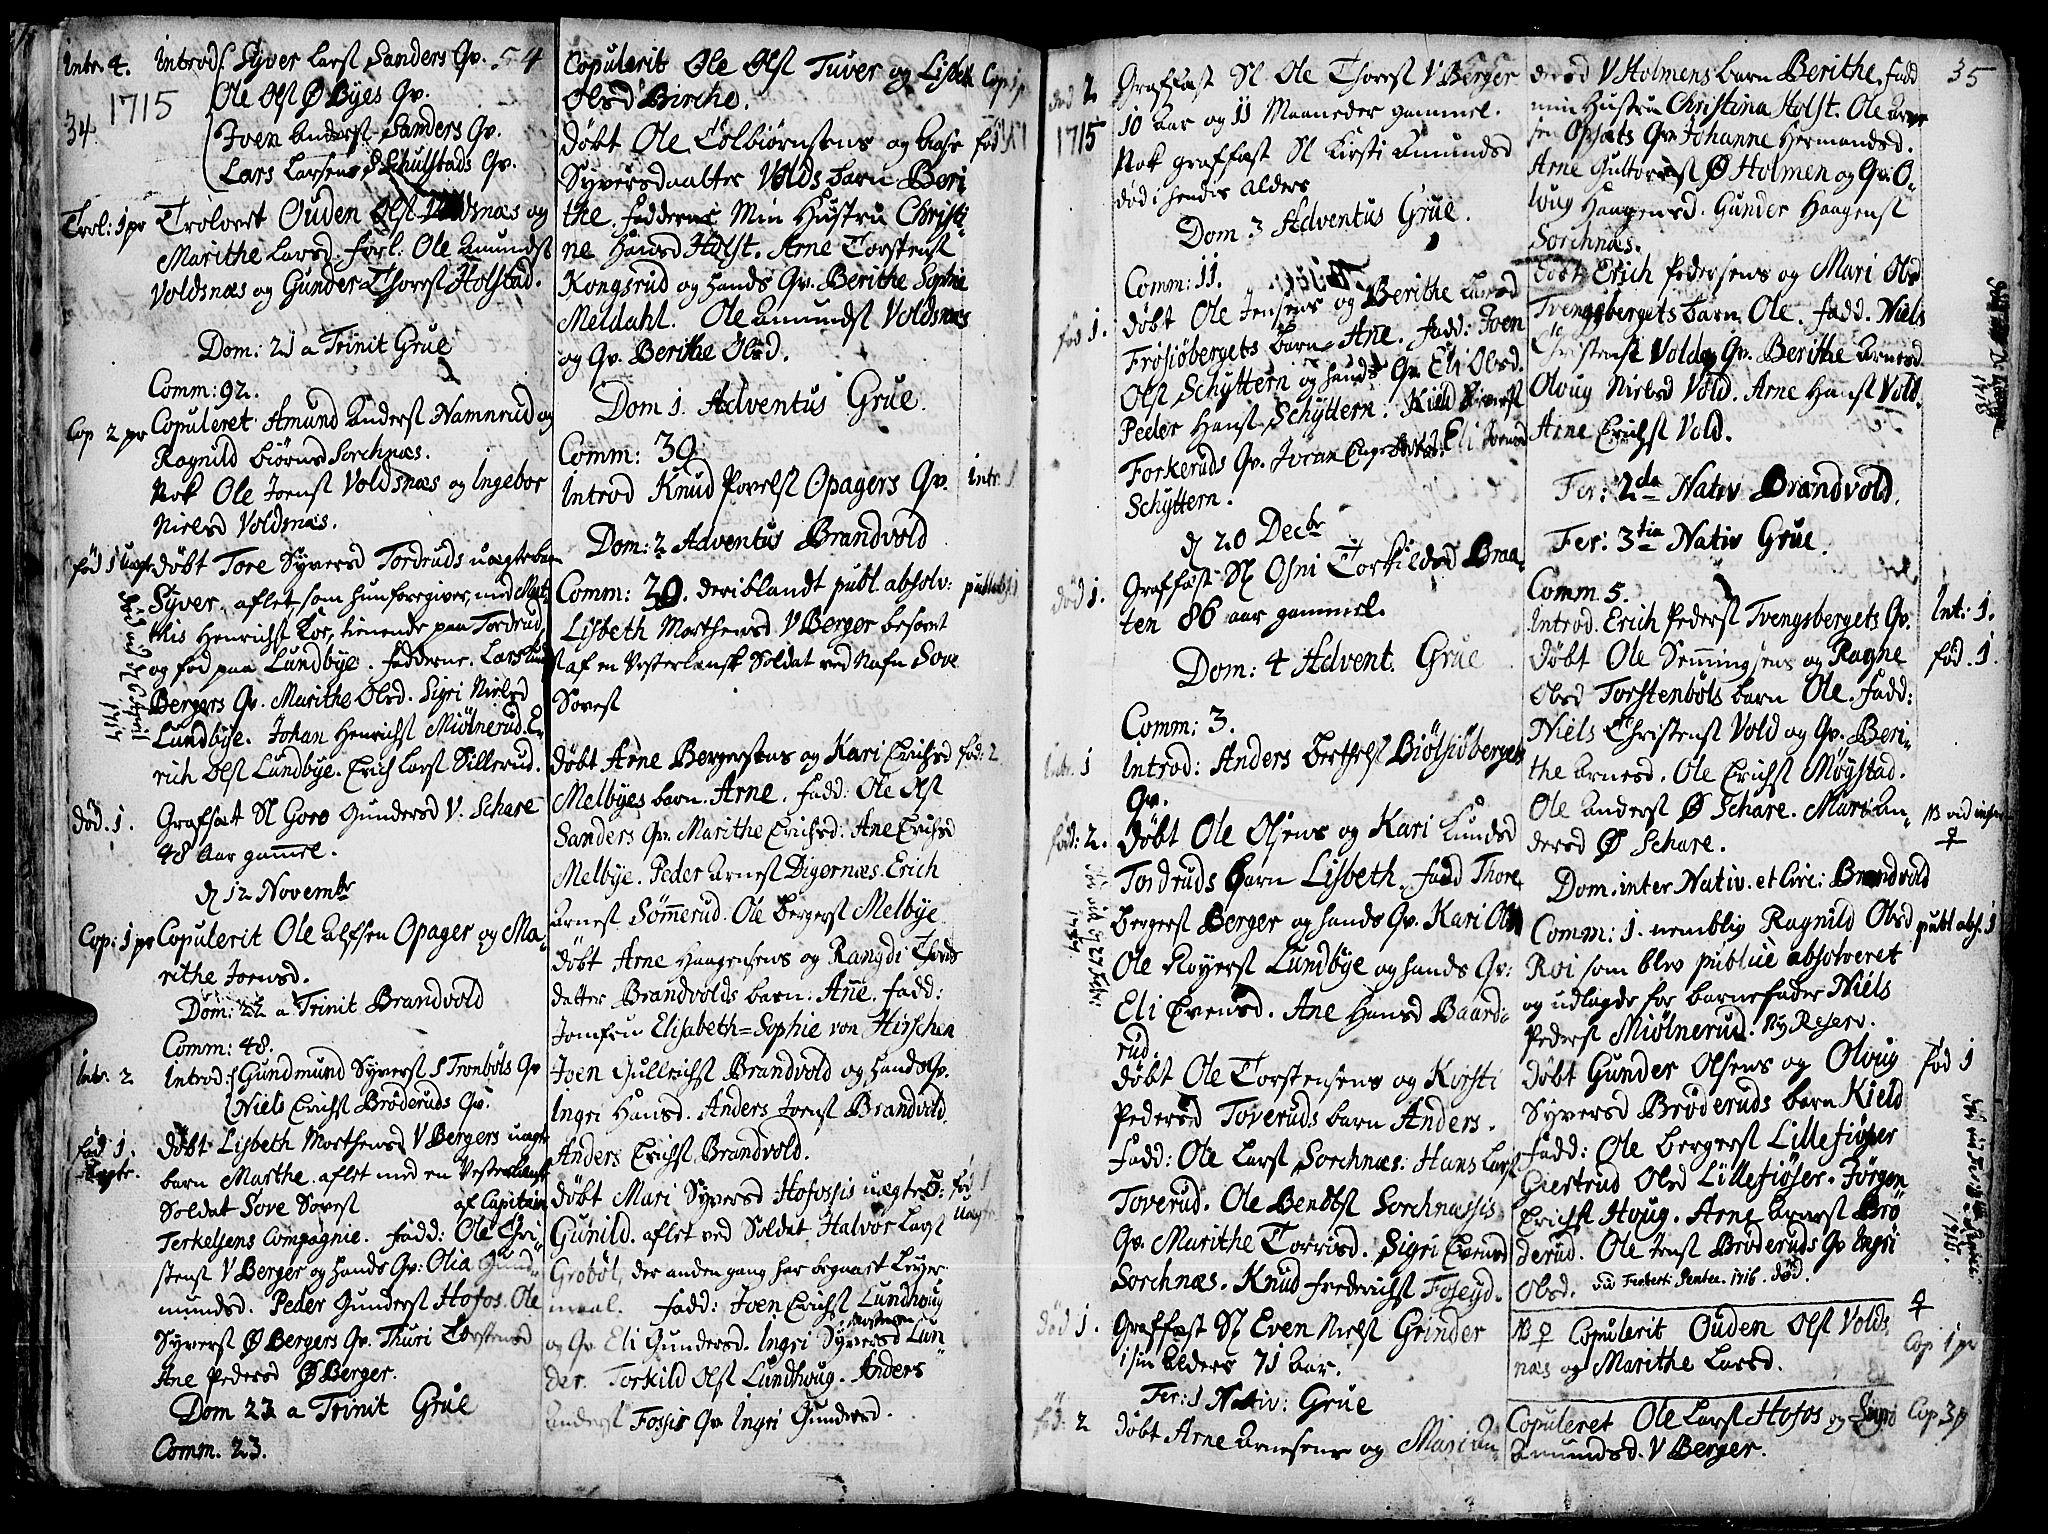 Intr. 4.
1715
34.
Introd Syver Larsſ Sanders Qv. 54
Ole Olsſ Ø Byes Qv.
Joen Andersſ Sanders Qv.
Lars Larsens Schulstads Qv.
Trol: 1 pr
Trolovet Ouden Olsſ Voldsnæs og
Marithe Larsd. forl. Ole Amundsſ
Voldsnæs og Gunder Thoresſ Hofstad.
Dom: 21 a Trinit Grue
Comm: 92.
Cop 2 pr
Copuleret Amund Andersſ Namnrud og
Ragnild Biørnsd Sorchnæs.
Nok Ole Joensſ Voldsnæs og Ingebor
Nielsd Voldsnæs.
fød 1 uægt
døbt Tore Syversd Tordruds uægte barn
Syver, aflet, som hun foregiver, med Mat-
this Henrichsſ Kor, tienende paa Tordrud,
og fød paa Lundbye. fadderne. Lars
Bergers Qv. Marithe Olsd. Sigri Nielsd
Lundbye. Johan Henrichsſ Miølnerud. E-
rich Olsſ Lundbye. Erich Larsſ Sillerud.
1717
død. 1.
Grafsæt Sl Goro Gundersd V. Schare
48 Aar gammel.
d 12 Novembr
Cop: 1 pr
Copulerit Ole Alfsen Opager og Ma-
rithe Joensd.
Dom: 22 a Trinit Brandvold
Comm: 48.
Intr. 2
Introd: Gundmund Syversſ S Trønbøls Qv
Niels Erichsſ Brøderuds Qv.
fød 1.
uægte.
døbt Lisbeth Morthensd V Bergers uægte
barn Marthe. aflet med en Vesterlænsk
Soldat Sove Sovesſ af Capitain
Terkelsens Compagnie. fadd: Ole Chri-
stensſ V Berger og hands Qv: Olia Gund-
mundsd. Peder Gundersſ Hofos. Ole
Syversſ Ø Bergers Qv. Thuri Torstensd
Ane Pedersd Ø Berger.
Dom 23 a Trinit Grue
Comm. 23.
Copulerit Ole Olsſ Tuver og Lisbeth
Olsd Birche.
Cop 1 p
døbt Ole Tolbiørnsens og Aase
fød
Syversdaatter Volds barn Beri
the. fadderne Min Hustru Christi-
ne Hansd Holst. Arne Torstensſ
Kongsrud og hands Qv. Berithe Sophie
Meldahl. Ole Amundsſ Voldsnæs
og Qv. Berithe Olsd.
Dom 1. Adventus Grue.
Comm: 39
Introd Knud Povelsſ Opagers Qv.
intr. 1
Dom: 2 Adventus Brandvold
Comm: 20. deriblandt publ. absolv:
publ abs 1
Lisbeth Morthensd V Berger besovet
af en Vesterlænsk Soldat ved Nafn Sove
Sovesſ
døbt Arne Bergersens og Kari Erichsd
fød: 2
Melbyes barn. Arne. fadd: Ole Olsſ
Sanders Qv. Marithe Erichsd: Ane Erichsd
Melbye. Peder Arnesſ Digernæs. Erich
Arnesſ Sømmerud. Ole Bergersſ Melbye
døbt Arne Haagensens og Rangdi Thords
datter Brandvolds barn: Ane. fadd:
Jomfru Elisabeth=Sophie von Hirschen
Joen Gullrichsſ Brandvold og hands Qv.
Ingri Hansd. Anders Joensſ Brandvold.
Anders Erichsſ Brandvold.
døbt Mari Syversd Hofossis uægte B:
fød 1
Uægte
Gunild. aflet ved Soldat Halvor Larsſ
Grobøl, der anden gang har begaaet Leyer-
maal. fadd: Joen Erichsſ Lundhoug
og Qv Eli Gundersd. Ingri Syversd Lun-
der. Torkild Olsſ Lundhoug. Anders
Andersſ Fossis Qv Ingri Gundersd.
død 2
1715
Graffæst Sl Ole Thoresſ V Berger
10 Aar og 11 Maaneder gammel.
Nok graffæst Sl Kirsti Amundsd
død i hendis alders
Dom 3 Adventus Grue.
Comm: 11.
fød 1.
døbt Ole Jensens og Berithe Larsd
Frøsiøbergets barn Ane. fadd: Joen
Olsſ Schyttern og hands Qv Eli Olsd.
Peder Hansſ Schyttern. Kield Siversſ
Forkeruds Qv. Joran Engebretsd. Eli Joensd
Schyttern.
d 20 Decbr
død 1.
Graffæst Sl Osni Torkildsd Braa-
ten 86 aar gammel.
Dom: 4 Advent. Grue
Comm: 3.
Intr. 1
Introd: Anders Berthelsſ Biølsiøbergets
Qv.
fød: 2.
døbt Ole Olsens og Kari Knudsd
Tordruds barn Lisbeth. fadd Thore
Bergersſ Berger og hands Qv. Kari Olsd
Ole Royersſ Lundbye og hands Qv:
Eli Evensd. Ane Hansd Baarde-
rud.
døbt Ole Torstensens og Kirsti
Pedersd Toveruds barn Anders.
fadd: Ole Larsſ Sorchnæs. Hans Larsſ
Toverud. Ole Bendtsſ Sorchnæssis
Qv. Marithe Torrisd. Sigri Evensd
Sorchnæs. Knud Frederichsſ Foseyd.
død 1.
Graffæst Sl Even Nielsſ Grinder
i sin alders 71 aar.
Fer: 1 Nativ: Grue
fød. 2
døbt Arne Arnesens og Mari An-
35
dersd V Holmens barn Berithe, fadd
min Hustru Christina Holst. Ole Arne-
sen Opsæts Qv. Johanne Hermandsd.
Arne Guttormsſ Ø Holmen og Qv: O-
loug Haagensd. Gunder Haagensſ
Sorchnæs.
døbt Erich Pedersens og Mari Olsd
Tvengsbergets barn Ole. fadd. Niels
Christensſ Vold og Qv. Berithe Arnesd.
Oloug Nielsd Vold. Arne Hansſ Vold.
Arne Erichsſ Vold.
1718
Fer: 2da Nativ Brandvold.
Fer: 3tia Nativ Grue.
Comm 5.
Introd. Erich Pedersſ Tvengsbergets Qv.
Int: 1.
døbt Ole Semmingsens og Ragne
fød. 1.
Olsd Torstenbøls barn Ole. fadd:
Niels Christensſ Vold og Qv. Beri-
the Arnesd. Ole Erichsſ Møystad.
Ole Andersſ Ø Schare. Mari An-
dersd Ø Schare.
NB vid infra
♀
Dom. inter Nativ. et Circ: Brandvold
Comm: 1. nemblig Ragnild Olsd
publ abs. 1
Roi som blev publice absolveret
og udlagde for barnefader Niels
Pedersſ Miølnerud. Ny Reserv.
døbt Gunder Olsens og Oloug
fød 1
Syversd Brøderuds barn Kield
fadd: Ole Bergersſ Lillefiøser
Giertrud Olsd Lillefiøser. Jørgen
Erichsſ Houg. Arne Arnesſ Brø
derud. Ole Jensſ Brøderuds Qv Ingri
Olsd.
1716. død.
NB ♀ Copulerit Ouden Olsſ Volds
næs og Marithe Larsd.
♀
Cop 1 pr
Copuleret Ole Larsſ Hofos og Sigri
Amundsd. V Berger.
Cop 3 p